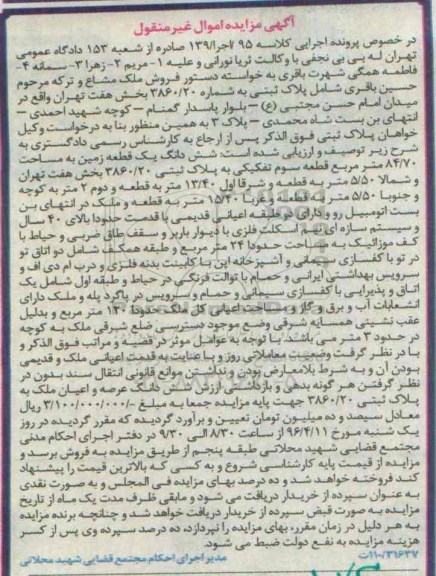 آگهی مزایده اموال غیر منقول
در خصوص پرونده اجرایی کلاسه ۹۵ /اجرا/۱۳۹ صادره از شعبه ۱۵۳ دادگاه عمومی
تهران له بی بی نجفی با وکالت ثریا نورانی و علیه ۱- مریم ۲- زهرا ۳- سمانه ۴-
فاطمه همگی شهرت باقری به خواسته دستور فروش ملک مشاع و ترکه مرحوم
حسین باقری شامل پلاک ثبتی به شماره ۳۸۶۰/۲۰ بخش هفت تهران واقع در
میدان امام حسن مجتبی (ع) – بلوار پاسدار گمنام – کوچه شهید احمدی –
انتهای بن بست شاه محمدی – پلاک ۳ به همین منظور بنا به درخواست وکیل
خواهان پلاک ثبتی فوق الذکر پس از ارجاع به کارشناس رسمی دادگستری به
شرح زیر توصیف و ارزیابی شده است: شش دانگ یک قطعه زمین به مساحت
۸۴/۷۰ متر مربع قطعه سوم تفکیکی به پلاک ثبتی ۳۸۶۰/۲۰ بخش هفت تهران
و شمالا ۵/۵۰ متر به قطعه و شرقا اول ۱۳/۴۰ متر به قطعه و دوم ۲ متر به کوچه
و جنوبا ۵/۵۰ متر به قطعه و غربا ۱۵/۴۰ متر به قطعه و ملک در انتهای بن
بست اتومبیل رو و دارای دو طبقه اعیانی قدیمی با قدمت حدودا بالای ۴۰ سال
و سیستم سازه ای نیم اسکلت فلزی با دیوار باربر و سقف طاق ضربی و حیاط با
کف موزائیک به مساحت حدودا ۲۴ متر مربع و طبقه همکف شامل دو اتاق تو
در تو با کفسازی سیمانی و آشپزخانه اپن با کابینت بدنه فلزی و درب ام دی اف و
سرویس بهداشتی ایرانی و حمام با توالت فرنگی در حیاط و طبقه اول شامل یک
اتاق و پذیرایی با کفسازی سیمانی و حمام و سرویس در پاگرد پله و ملک دارای
انشعابات آب و برق و گاز و مساحت اعیانی کل ملک حدودا ۱۳۰ متر مربع و بدلیل
عقب نشینی همسایه شرقی وضع موجود دسترسی ضلع شرقی ملک به کوچه
در حدود ۳ متر می باشد. با توجه به عوامل موثر در قضیه و مراتب فوق الذکر و
با در نظر گرفت وضعیت معاملاتی روز و با عنایت به قدمت اعیانی ملک و قدیمی
بودن آن و به شرط بلامعارض بودن و نداشتن موانع قانونی انتقال سند بدون در
نظر گرفتن هر گونه بدهی و بازداشتی ارزش شش دانگ عرصه و اعیان ملک به
پلاک ثبتی ۳۸۶۰/۲۰ جهت پایه مزایده جمعا به مبلغ -/۳/۱۰۰/۰۰۰/۰۰۰ ریال
معادل سیصد و ده میلیون تومان تعیین و برآورد گردیده که مقرر گردیده در روز
یک شنبه مورخ ۹۶/۴/۱۱ از ساعت ۸/۳۰ الی ۹/۳۰ در دفتر اجرای احکام مدنی
مجتمع قضایی شهید محلاتی طبقه پنجم از طریق مزایده به فروش برسد و
مزایده از قیمت پایه کارشناسی شروع و به کسی که بالاترین قیمت را پیشنهاد
کند فروخته خواهد شد و ده درصد بهای مزایده فی المجلس و به صورت نقدی
به عنوان سپرده از خریدار دریافت می شود و مابقی ظرف مدت یک ماه از تاریخ
مزایده به صورت قبض سپرده از خریدار دریافت خواهد شد و چنانچه برنده مزایده
به هر دلیل در زمان مقرر، بهای مزایده را نپردازد، ده درصد سپرده وی پس از کسر
هزینه مزایده به نفع دولت ضبط می شود.
۱۱۰/۳۱۶۳۷ت مدیر اجرای احکام مجتمع قضایی شهید محلاتی